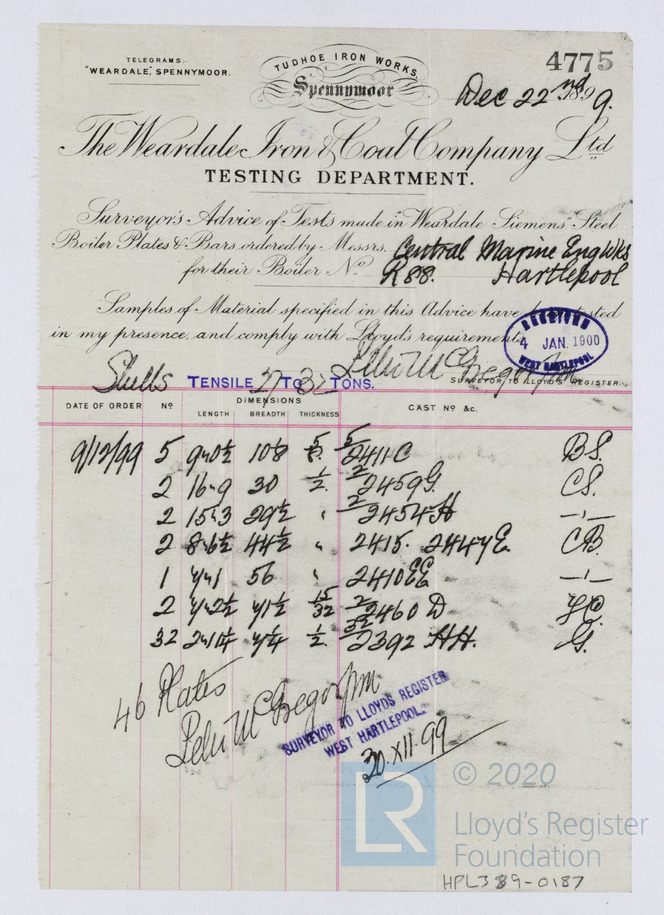 TELEGRAMS:
"WEARDALE", SPENNYMOOR.
TUDHOE IRON WORKS
Spennymoor
4775
Dec 22nd 1899.
The Weardale Iron & Coal Company Ltd
TESTING DEPARTMENT.
Surveyor's Advice of Tests made in "Weardale Siemens" Steel
Boiler Plates & Bars ordered by Messrs. Central Marine Eng Wks
for their Boiler No R88. Hartlepool
Samples of Material specified in this Advice have been tested
in my presence, and comply with Lloyd's requirements.
REGISTERED
4 JAN. 1900
WEST HARTLEPOOL
SURVEYOR TO LLOYD'S REGISTER.
Shells TENSILE 27 TO 32 TONS.
DATE OF ORDER No DIMENSIONS LENGTH BREADTH THICKNESS CAST No &c.
9/12/99 5 9-0½ 108 5/8 5/2411C B.S.
2 16-9 30 ½ 2/2459G. C.S.
2 15-3 29½ " 2/2454H -"-
2 8-6½ 44½ " 2415. 2447E. C.B.
1 56 " 2410EE -"-
2 15/32 2/2460 D
32 ½ 32/2392 HH. G.
46 Plates
SURVEYOR TO LLOYDS REGISTER
WEST HARTLEPOOL.
30.XII.99
© 2020
LR
Lloyd's Register
Foundation
HPL389-0187